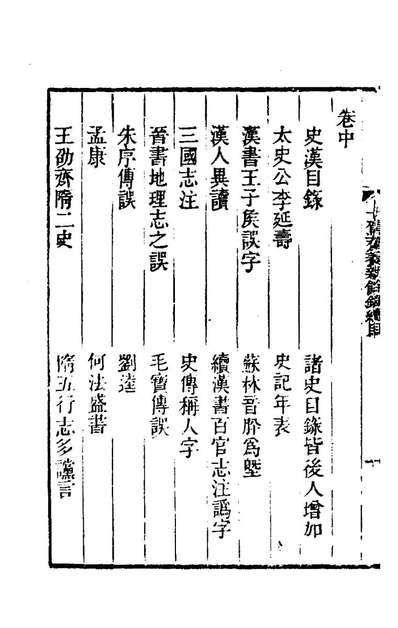 卷中
史漢目錄　諸史目錄皆後人增加
太史公李延壽　史記年表
漢書王子矦誤字　蘇林音爲
漢人異讀　續漢書百官志注譌字
三國志注　史傳稱人字
晉書地理志之誤　毛寶傳誤
朱序傳誤　劉逵
孟康　何法盛書
王劭齊隋二史　隋五行志多讜言